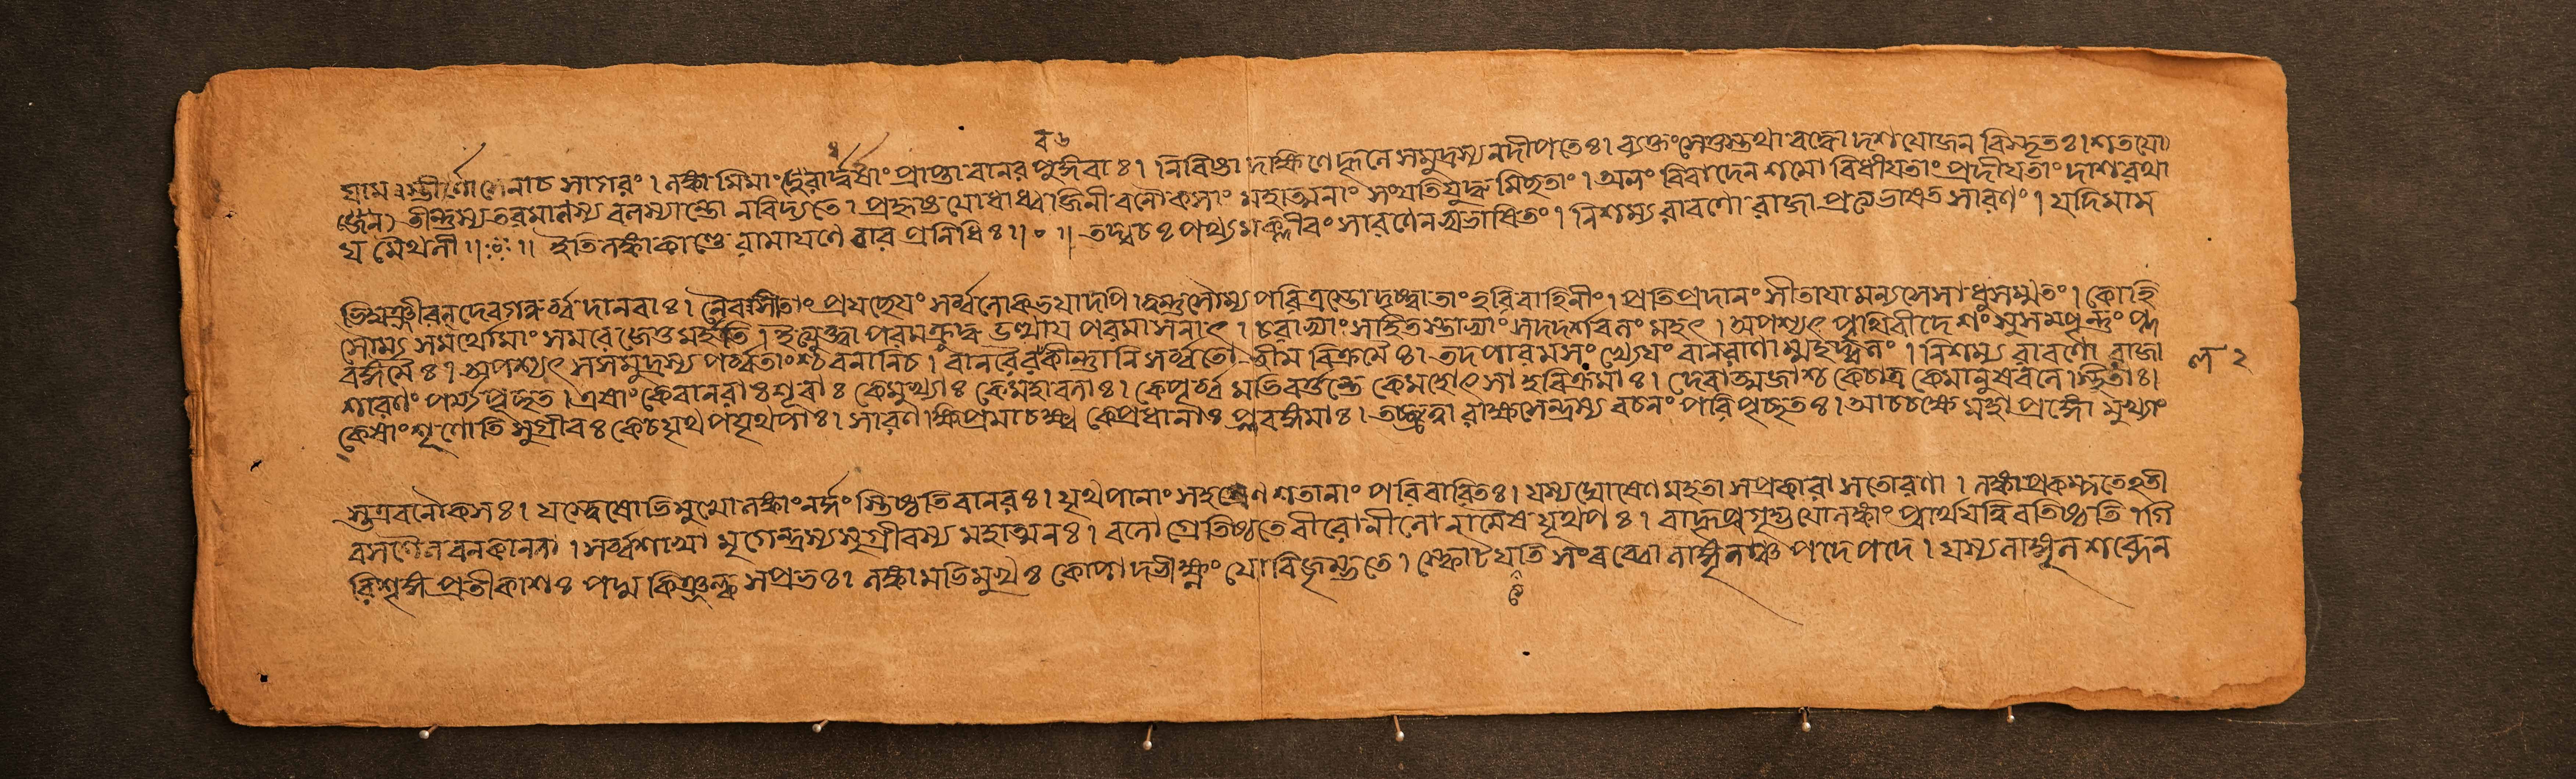 ব৬
গ্রামঃ স্তীর্ণো তেনাচ সাগরং । লঙ্কামিমাং দুরাধর্ষাং প্রাপ্তা বানর পুঙ্গবাঃ । নিবিষ্টা দক্ষিণে কূলে সমুদ্রস্য নদীপতেঃ । ব্যক্তং সেতুস্তথা বদ্ধো দশযোজন বিস্তৃতঃ । শতযো
জেন) তীর্ন্দ্রস্যতরমানস্য বলস্যান্তো নবিদ্যতে । প্রহৃষ্ট যোধা ধ্বজিনী বনৌকসাং মহাত্মনাং সংযাতি যুদ্ধ মিচ্ছতাং । অলং বিবাদেন শমো বিধীয়তাং প্রদীয়তাং দাশরথা
য মৈথলী ॥ ॥ ইতি লঙ্কাকাণ্ডে রামায়ণে চার প্রনিধিঃ ॥ ০ ॥ তদ্বচঃ পথ্যমক্লীবং সারণেনাভিভাষিতং । নিশম্য রাবণো রাজা প্রত্যভাষত সারণং । যদিমাম
ভিযুঞ্জীরন্ দেবগন্ধর্ব্ব দানবাঃ । নৈব সীতাং প্রযচ্ছেয়ং সর্ব্বলোক ভয়াদপি । ত্বন্তু সৌম্য পরিত্রস্তো দৃষ্ট্বা তাং হরিবাহিনীং । প্রতিপ্রদানং সীতায়া মন্যসে সাধুসম্মতং । কোহি
সৌম্য সমর্থো মাং সমরে জেতুমর্হতি । ইত্যুক্ত্বা পরমক্রুদ্ধ উত্থায় পরমাসনাৎ । চরাভ্যাং সহিতস্তাভ্যাং সদদর্শ বলং মহৎ । অপশ্যৎ পৃথিবীদেশং সুসম্পূর্ন্নং প্ল
বঙ্গমৈঃ । অপশ্যৎ সসমুদ্রস্য পর্ব্বতাংশ্চ বনানিচ । বানরৈরবকীর্ন্নানি সর্ব্বতো ভীম বিক্রমৈঃ । তদপারমসংখ্যেয়ং বানরাণাম্মহদ্বলং । নিশম্য রাবণো রাজা
ল ২
শারণং পর্য্যপৃচ্ছত । এষাং কেবানরাঃ শূরাঃ কেমুখ্যাঃ কেমহাবলাঃ । কেপূর্ব্ব মভিবর্ত্তন্তে কেমহোৎসাহবিক্রমাঃ । দেবাত্মজাশ্চ কেচাত্র কেমানুষবনে স্থিতাঃ ।
কেষাং শৃণোতি সুগ্রীবঃ কেচ যূথপযূথপাঃ । সারণ ক্ষিপ্রমাচক্ষ্ব কেপ্রধানাঃ প্লবঙ্গমাঃ । তচ্ছ্রুত্বা রাক্ষসেন্দ্রস্য বচনং পরিপৃচ্ছতঃ । আচচক্ষে মহাপ্রাজ্ঞো মুখ্যাং
স্তত্রবনৌকসঃ । যস্ত্বেষোভিমুখো লঙ্কাং নর্দ্দং স্তিষ্ঠতি বানরঃ । যূথপানাং সহস্রেণ শতানাং পরিবারিতঃ । যস্যঘোষেণ মহতা সপ্রাকারা সতোরণা । লঙ্কাপ্রকম্পতেহতী
বসশৈল বনকাননা । সর্ব্বশাখা মৃগেন্দ্রস্য সুগ্রীবস্য মহাত্মনঃ । বলাগ্রেতিষ্ঠতে বীরো নীলো নামৈষ যূথপঃ । বাহূপ্রগৃহ্যযোলঙ্কাং প্রার্থয়ন্নিবতিষ্ঠতি । গি
রিশৃঙ্গ প্রতীকাশঃ পদ্ম কিঞ্জল্ক সপ্রভঃ । লঙ্কামভিমুখঃ কোপাদভীক্ষ্ণং যোবিজৃম্ভতে । স্ফোটয়তি সংরব্ধো লাঙ্গূলঞ্চ পদে পদে । যস্য লাঙ্গূল শব্দেন